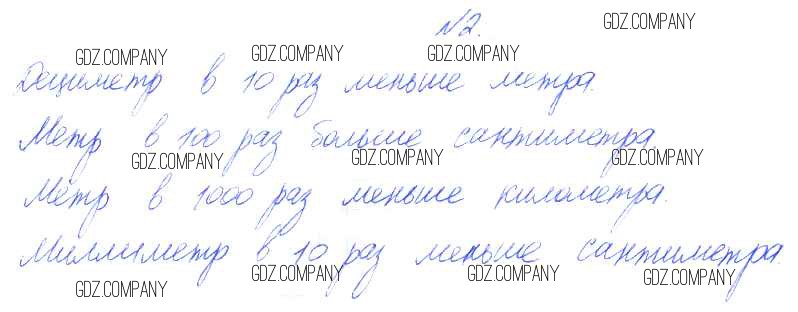 №2.
Дециметр в 10 раз меньше метра.
Метр в 100 раз больше сантиметра.
Метр в 1000 раз меньше километра.
Миллиметр в 10 раз меньше сантиметра.
GDZ.COMPANY
GDZ.COMPANY
GDZ.COMPANY
GDZ.COMPANY
GDZ.COMPANY
GDZ.COMPANY
GDZ.COMPANY
GDZ.COMPANY
GDZ.COMPANY
GDZ.COMPANY
GDZ.COMPANY
GDZ.COMPANY